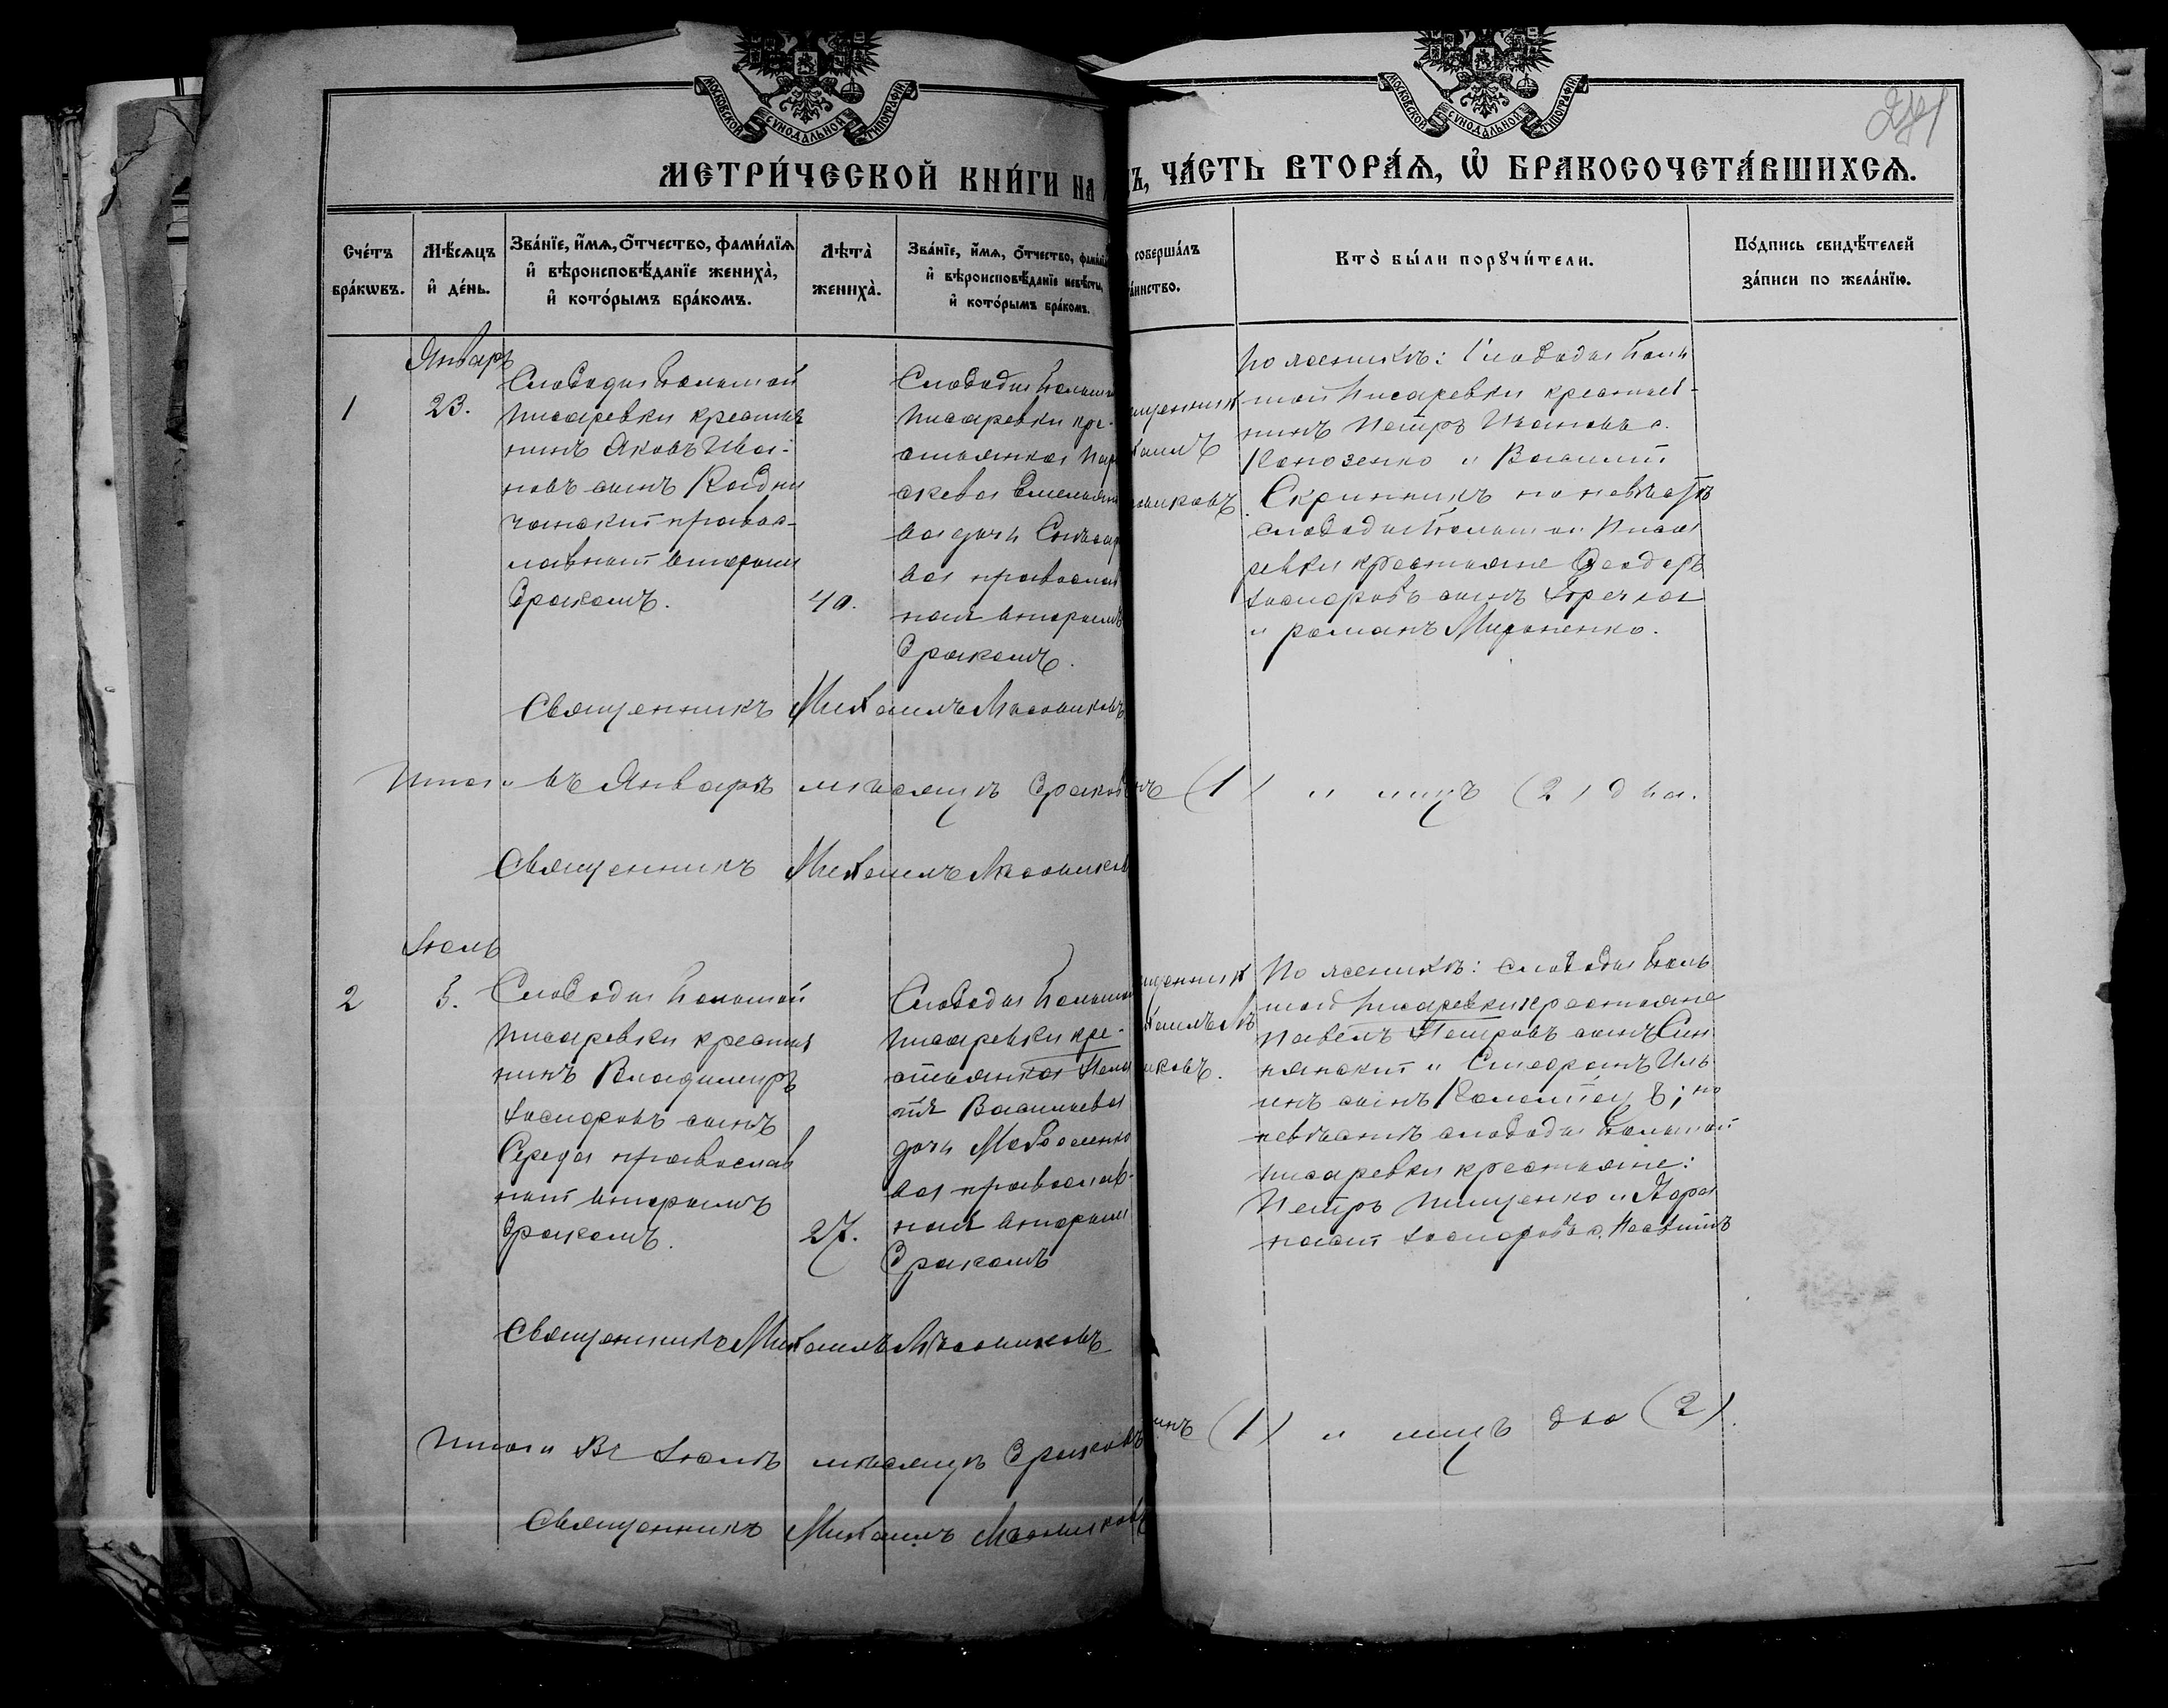 МОСКОВСКОЙ СѴНОДАЛЬНОЙ ТИПОГРАФІИ
МОСКОВСКОЙ СѴНОДАЛЬНОЙ ТИПОГРАФІИ
МЕТРИ́ЧЕСКОЙ КНИ́ГИ НА
Ъ, ЧА́СТЬ ВТОРА́Ѧ, Ѡ҆ БРАКОСОЧЕТА́ВШИХСѦ.
Сче́тъ
бра́кѡвъ.
Мѣ́сѧцъ
и҆ де́нь.
Зва́нїе, и҆́мѧ, о҆́тчество, фами́лїѧ
и҆ вѣроисповѣ́данїе жениха̀,
и҆ кото́рымъ бра́комъ.
Лѣ́та̀
жениха̀.
Зва́нїе, и҆́мѧ, о҆́тчество, фами́лїѧ
и҆ вѣроисповѣ́данїе невѣ́сты,
и҆ кото́рымъ бра́комъ.
соверша́лъ
та́инство.
Кто̀ бы́ли порꙋчи́тели.
По́дпись свидѣ́телей
за́писи по жела́нїю.
Январь
1
23.
Слободы Большой
Писаревки крестья
нинъ Яковъ Ива-
новъ сынъ
правос-
лавный вторымъ
бракомъ.
40.
Слободы Большой
Писаревки кре-
стьянка Пар
аскева Емельяно
ва дочь
ва православ
ная вторымъ
бракомъ.
щенник
хаилъ
сликовъ
По женихѣ: Слободы Боль
шой Писаревки крестьян-
инъ Петръ Ивановъ с.
и Василій
Скринникъ по невѣстѣ
слободы Большой Писа
ревки крестьяне Ѳеодоръ
Іосифовъ сынъ
и Романъ Мироненко.
Священникъ Михаилъ
Итого въ Январѣ мѣсяцѣ браковъ
(1) и лицъ (2) два.
Священникъ Михаилъ
Іюль
2
5.
Слободы Большой
Писаревки крестья
нинъ Владимиръ
Іосифовъ сынъ
Середа православ
ный вторымъ
бракомъ.
27.
Слободы Большой
Писаревки кре-
стьянка Пела
гія Васильева
дочь
ва православ-
ная вторымъ
бракомъ
щенник
хаилъ
иковъ.
По женихѣ: слободы Боль
шой Писаревки крестьяне
Павелъ Петровъ сынъ Син
янскій и Стефанъ Иль
инъ сынъ Коломіец ъ; по
невѣстѣ слободы Большой
Писаревки крестьяне:
Петръ Пищенко и Аѳа
насій Іосифовъ с.
Священникъ Михаилъ
Итого въ Іюлѣ мѣсяцѣ браковъ
(1) и лицъ два (2).
Священникъ Михаилъ